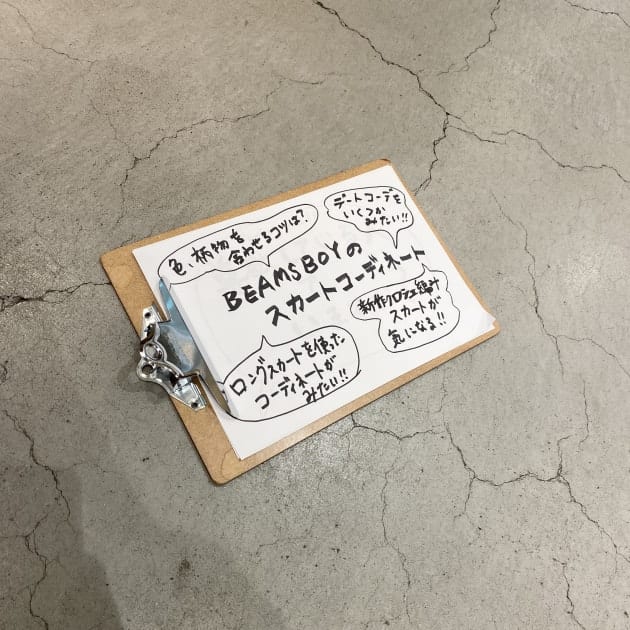 色、柄物を
合わせるコツは?
デートコーデを
いくつか
みたい!!
BEAMS BOYの
スカートコーディネート
新作クロシェ編み
スカートが
気になる!!
ロングスカートを使った
コーディネートが
みたい!!